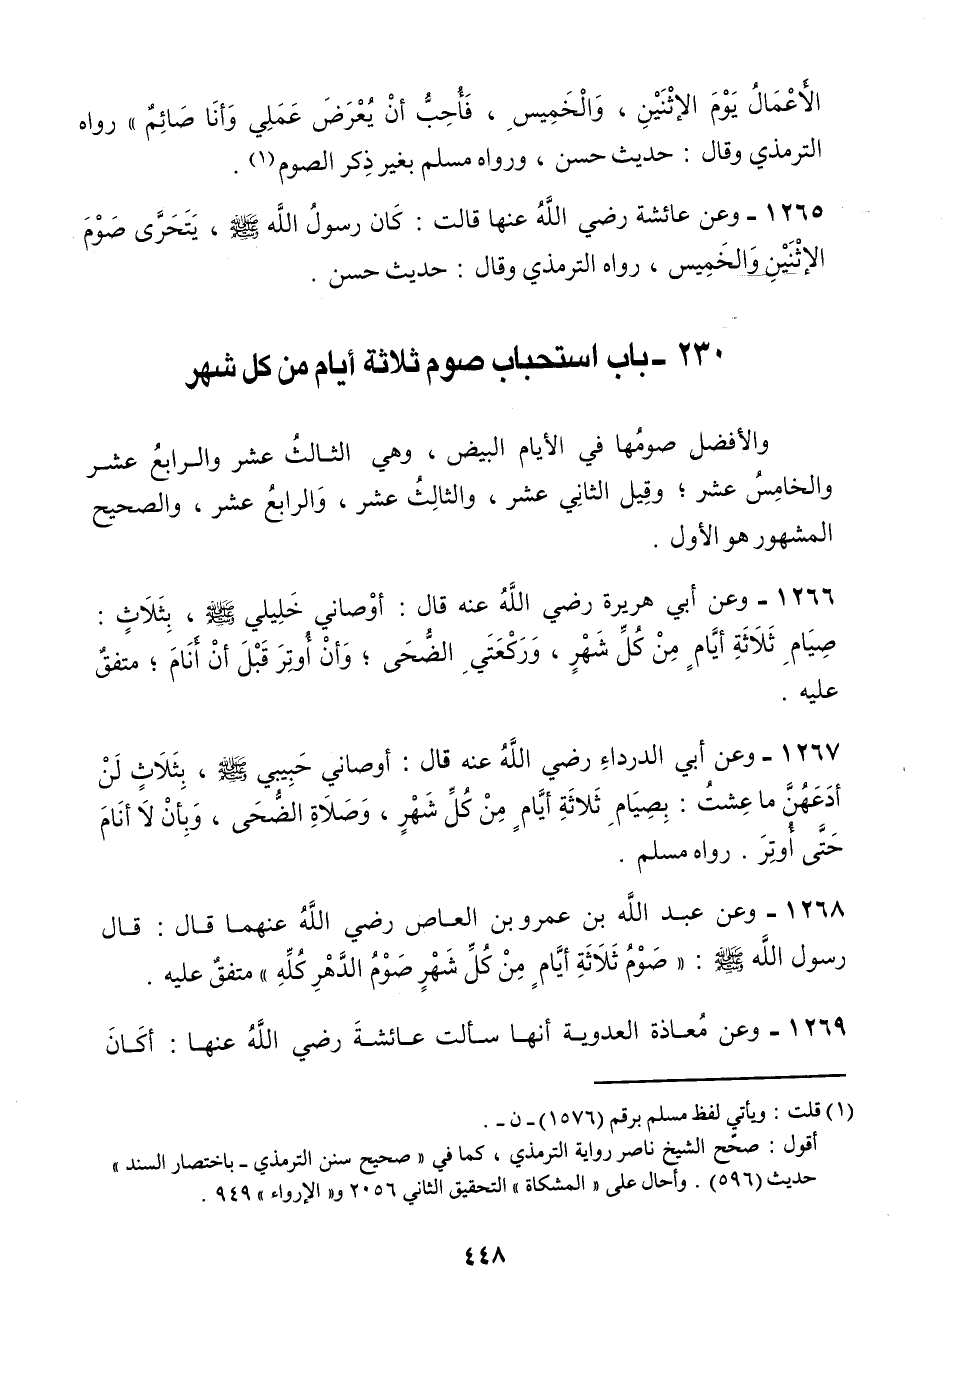 الأَعْمَالُ يَوْمَ الإِثْنَيْنِ ، وَالْخَمِيسِ ، فَأُحِبُّ أَنْ يُعْرَضَ عَمَلِي وَأَنَا صَائِمٌ » رواه
الترمذي وقال : حديث حسن ، ورواه مسلم بغير ذِكر الصوم(١) .
١٢٦٥ - وعن عائشة رضي اللَّهُ عنها قالت : كَان رسولُ اللَّه ﷺ ، يَتَحَرَّى صَوْمَ
الإِثْنَيْنِ وَالخَمِيس ، رواه الترمذي وقال : حديث حسن .
٢٣٠ - باب استحباب صوم ثلاثة أيام من كل شهر
والأفضل صومُها في الأيام البيض ، وهي الثالثُ عشر والرابعُ عشر
والخامِسُ عشر ؛ وقِيل الثاني عشر ، والثالِثُ عشر ، وَالرابعُ عشر ، والصحيح
المشهور هو الأول .
١٢٦٦ - وعن أبي هريرة رضي اللَّهُ عنه قال : أوْصاني خَلِيلي ﷺ ، بِثَلَاثٍ :
صِيَامِ ثَلَاثَةِ أيَّامٍ مِنْ كُلِّ شَهْرٍ ، وَرَكْعَتَيِ الضُّحَى ؛ وَأنْ أُوتِرَ قَبْلَ أنْ أَنَامَ ؛ متفقٌ
عليه .
١٢٦٧ - وعن أبي الدرداءِ رضي اللَّهُ عنه قال : أوصاني حَبِيبي ﷺ ، بِثَلَاثٍ لَنْ
أدَعَهُنَّ ما عِشتُ : بِصِيَامِ ثَلاثَةِ أيَّامٍ مِنْ كُلِّ شَهْرٍ ، وَصَلَاةِ الضُّحَى ، وَبِأنْ لاَ أنَامَ
حَتَّى أُوتِرَ . رواه مسلم .
١٢٦٨ - وعن عبد اللَّه بن عمرو بن العاص رضي اللَّهُ عنهما قال : قال
رسول اللَّه ﷺ : « صَوْمُ ثَلَاثَةِ أيَّامٍ مِنْ كُلِّ شَهْرٍ صَوْمُ الدَّهْرِ كُلِّهِ » متفقٌ عليه .
١٢٦٩ - وعن مُعاذة العدوية أنها سألت عائشةَ رضي اللَّهُ عنها : أكَانَ
(١) قلت : ويأتي لفظ مسلم برقم (١٥٧٦) - ن - .
أقول : صحّح الشيخ ناصر رواية الترمذي ، كما في « صحيح سنن الترمذي - باختصار السند »
حديث (٥٩٦) . وأحال على « المشكاة » التحقيق الثاني ٢٠٥٦ و« الإرواء » ٩٤٩ .
٤٤٨